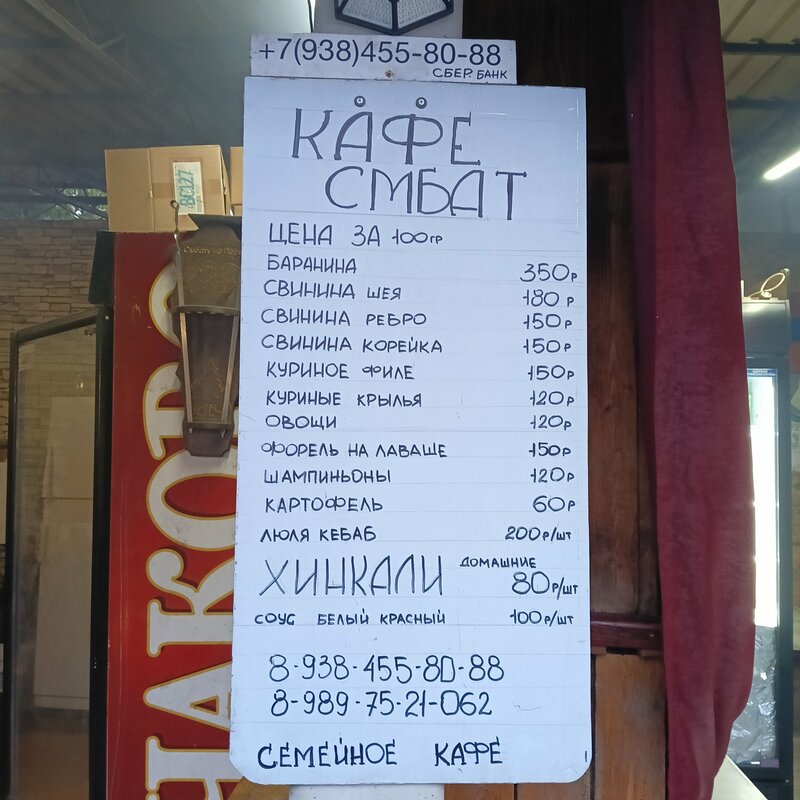 +7(938)455-80-88
СБЕР БАНК
КАФЕ
СМБАТ
ЦЕНА ЗА 100гр
БАРАНИНА 350р
СВИНИНА ШЕЯ 180 р
СВИНИНА РЕБРО 150р
СВИНИНА КОРЕЙКА 150р
КУРИНОЕ ФИЛЕ 150р
КУРИНЫЕ КРЫЛЬЯ 120р
ОВОЩИ 120р
ФОРЕЛЬ НА ЛАВАШЕ 150р
ШАМПИНЬОНЫ 120р
КАРТОФЕЛЬ 60р
ЛЮЛЯ КЕБАБ 200р/шт
ХИНКАЛИ ДОМАШНИЕ 80р/шт
СОУС БЕЛЫЙ КРАСНЫЙ 100р/шт
8-938-455-80-88
8-989-75-21-062
СЕМЕЙНОЕ КАФЕ